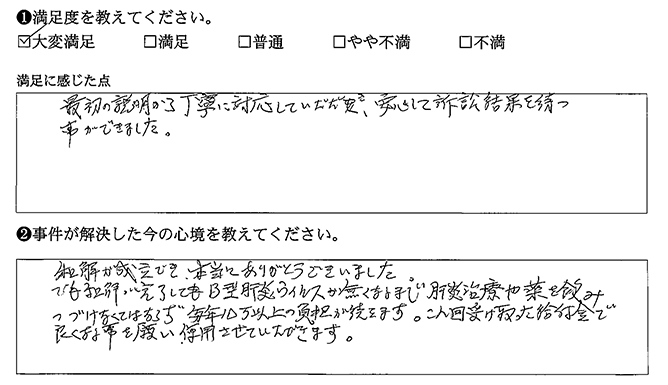 ❶満足度を教えてください。
☑大変満足 □満足 □普通 □やや不満 □不満
満足に感じた点
最初の説明から丁寧に対応していただき、安心して訴訟結果を待つ
事ができました。
❷事件が解決した今の心境を教えてください。
和解が成立でき、本当にありがとうございました。
でも和解が完了してもB型肝炎ウイルスが無くなるまで肝炎治療や薬を飲み
つづけなくてはならず毎年 万以上の負担が続きます。この回受け取った給付金で
良くなる事を願い、使用させていただきます。